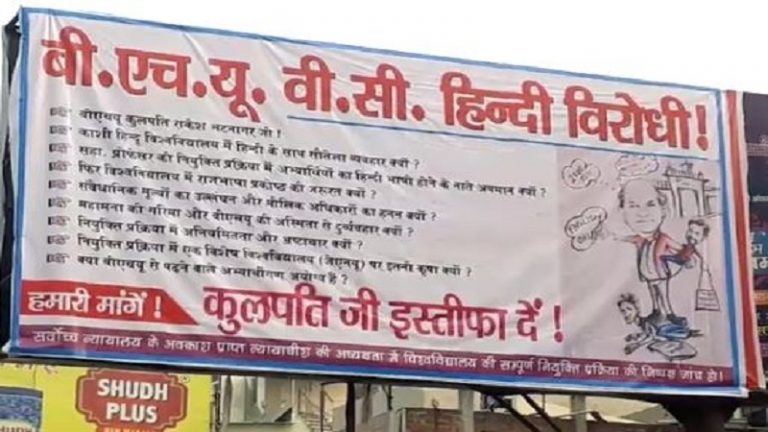 बी.एच.यू. वी.सी. हिन्दी विरोधी!
बीएचयू कुलपति राकेश भटनागर जी !
काशी हिन्दू विश्वविद्यालय में हिन्दी के साथ सौतेला व्यवहार क्यों ?
सहा. प्रोफेसर की नियुक्ति प्रक्रिया में अभ्यार्थियों का हिन्दी भाषी होने के नाते अपमान क्यों ?
फिर विश्वविद्यालय में राजभाषा प्रकोष्ठ की जरूरत क्यों ?
संवैधानिक मूल्यों का उल्लंघन और मौलिक अधिकारों का हनन क्यों ?
महामना की गरिमा और बीएचयू की अस्मिता से दुर्व्यवहार क्यों ?
नियुक्ति प्रक्रिया में अनियमितता और भ्रष्टाचार क्यों ?
नियुक्ति प्रक्रिया में एक विशेष विश्वविद्यालय (जेएनयू) पर इतनी कृपा क्यों ?
क्या बीएचयू से पढ़ने वाले अभ्यार्थीगण अयोग्य हैं ?
हमारी मांगें ! कुलपति जी इस्तीफा दें !
सर्वोच्च न्यायालय के अवकाश प्राप्त न्यायाधीश की अध्यक्षता में विश्वविद्यालय की सम्पूर्ण नियुक्ति प्रक्रिया की निष्पक्ष जांच हो!
SHUDH
PLUS